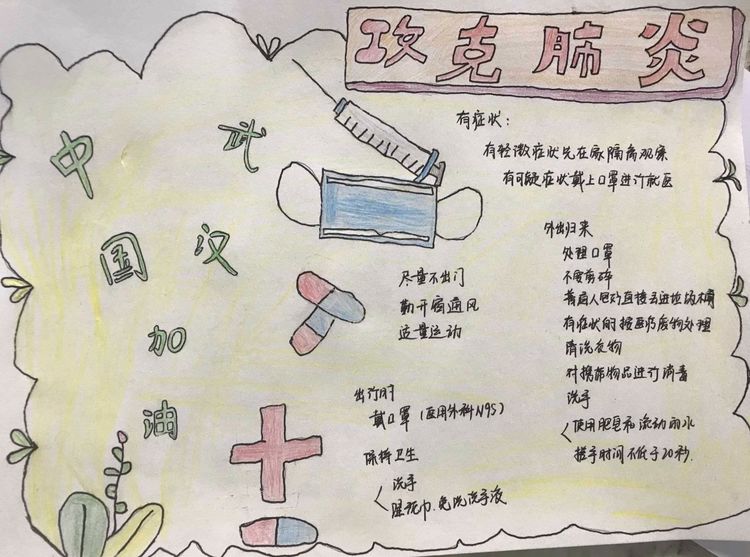 攻克肺炎
中国
武汉
加油
有症状：
有轻微症状先在家隔离观察
有可疑症状戴上口罩进行就医
外出归来
处理口罩
不需剪碎
普通人可直接丢进垃圾桶
有症状的按医疗废物处理
清洗衣物
对携带物品进行消毒
洗手
使用肥皂和流动的水
搓手时间不低于20秒.
尽量不出门
勤开窗通风
适量运动
出行时
戴口罩（医用外科N95）
保持卫生
洗手
湿纸巾.免洗洗手液